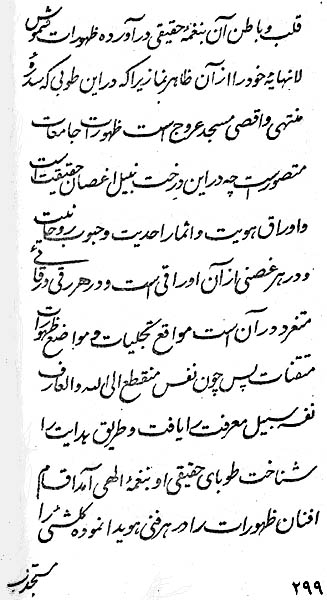 قلب و باطن آن بنغمهٔ حقیقی درآورده ظهورات شموش
لانهایهٔ خود را از آن ظاهر نماید زیرا که در این طوبی که سدرهٔ
منتهی و اقصی مسجد عروج است ظهورات جامعات
متصور است چه در این درخت نبیل اغصان حقیقت است
و اوراق هویت و اثمار احدیت و حبوب روحانیت
و در هر غصنی از آن اوراقی است و در هر رقی دقایقی
متغرد در آن است مواقع تجلیات و مواضع ظهورات
متقنات پس چون نفس منقطع الی الله و العارف
نفسه سبیل معرفت را یافت و طریق هدایت را
شناخت طوبای حقیقی او بنغمهٔ الهی آمد اقدام
افنان ظهورات را در هر فنی هویدا نموده کلشیء را
۲۹۹